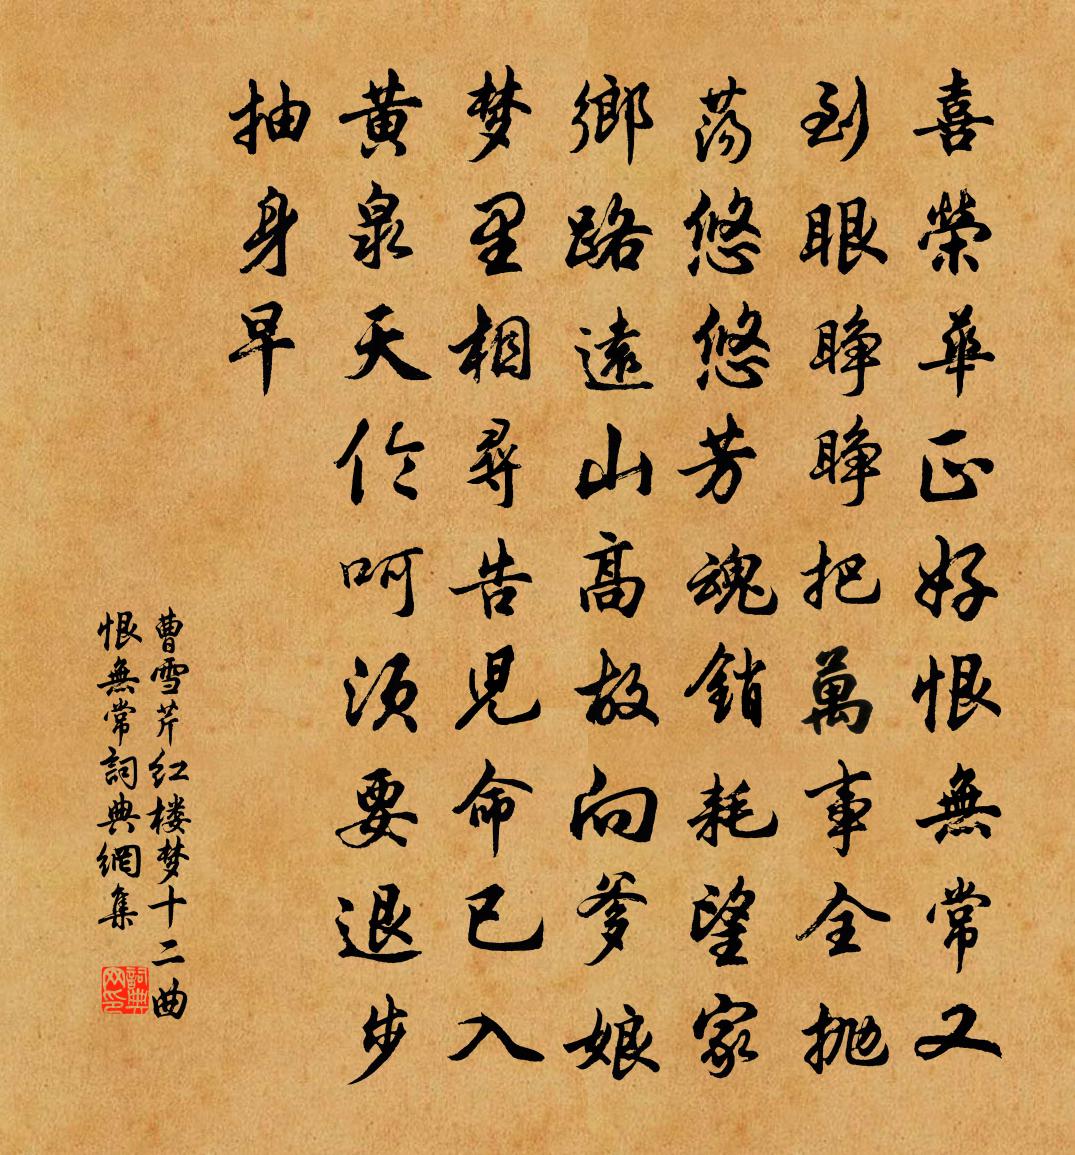 喜榮華正好恨無常又
到眼睜睜把萬事全抛
蕩悠悠芳魂銷耗望家
鄉路遠山高故向爹娘
梦里相尋告兒命已入
黃泉天伦呵須要退步
抽身早
曹雪芹红楼梦十二曲
恨無常詞典網集
詞典网印